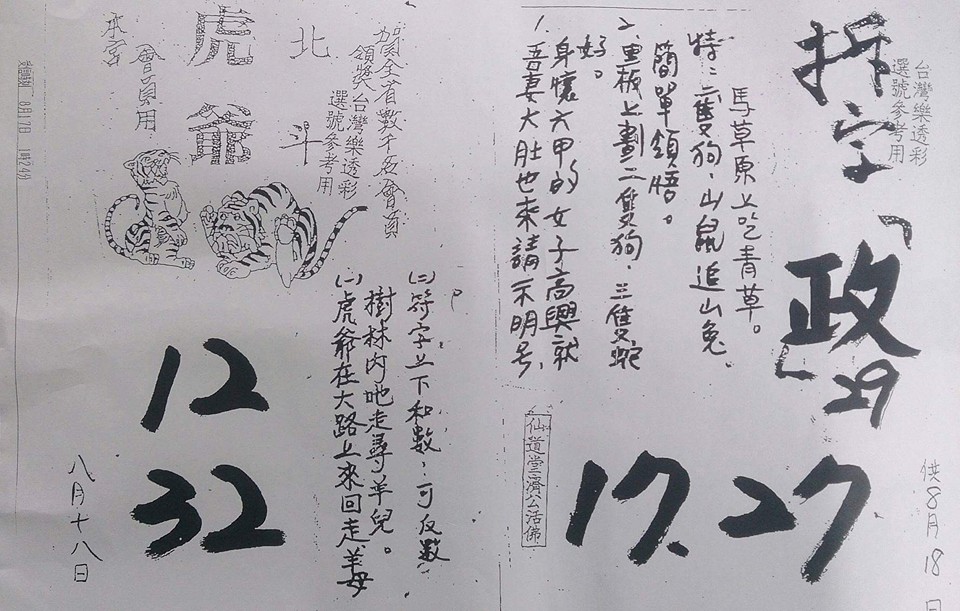 拆字
台灣樂透彩
選號參考用
「政」
29
17.27
供8月18日
馬草原上吃青草。
特:二隻狗、山鼠追山兔
簡單領悟。
2、里板上劃二隻狗、三隻蛇
好。
身懷六甲的女子高興就
1、吾妻大肚也來請示明号,
仙道堂濟公活佛
賀全省數千名會員
領獎台灣樂透彩
選號參考用
北斗
虎爺
會員用
本宮
(二)符字上下和數,可反數
樹林內吔走尋羊兒。
(一)虎爺在大路上來回走,羊母
12
32
八月十八日